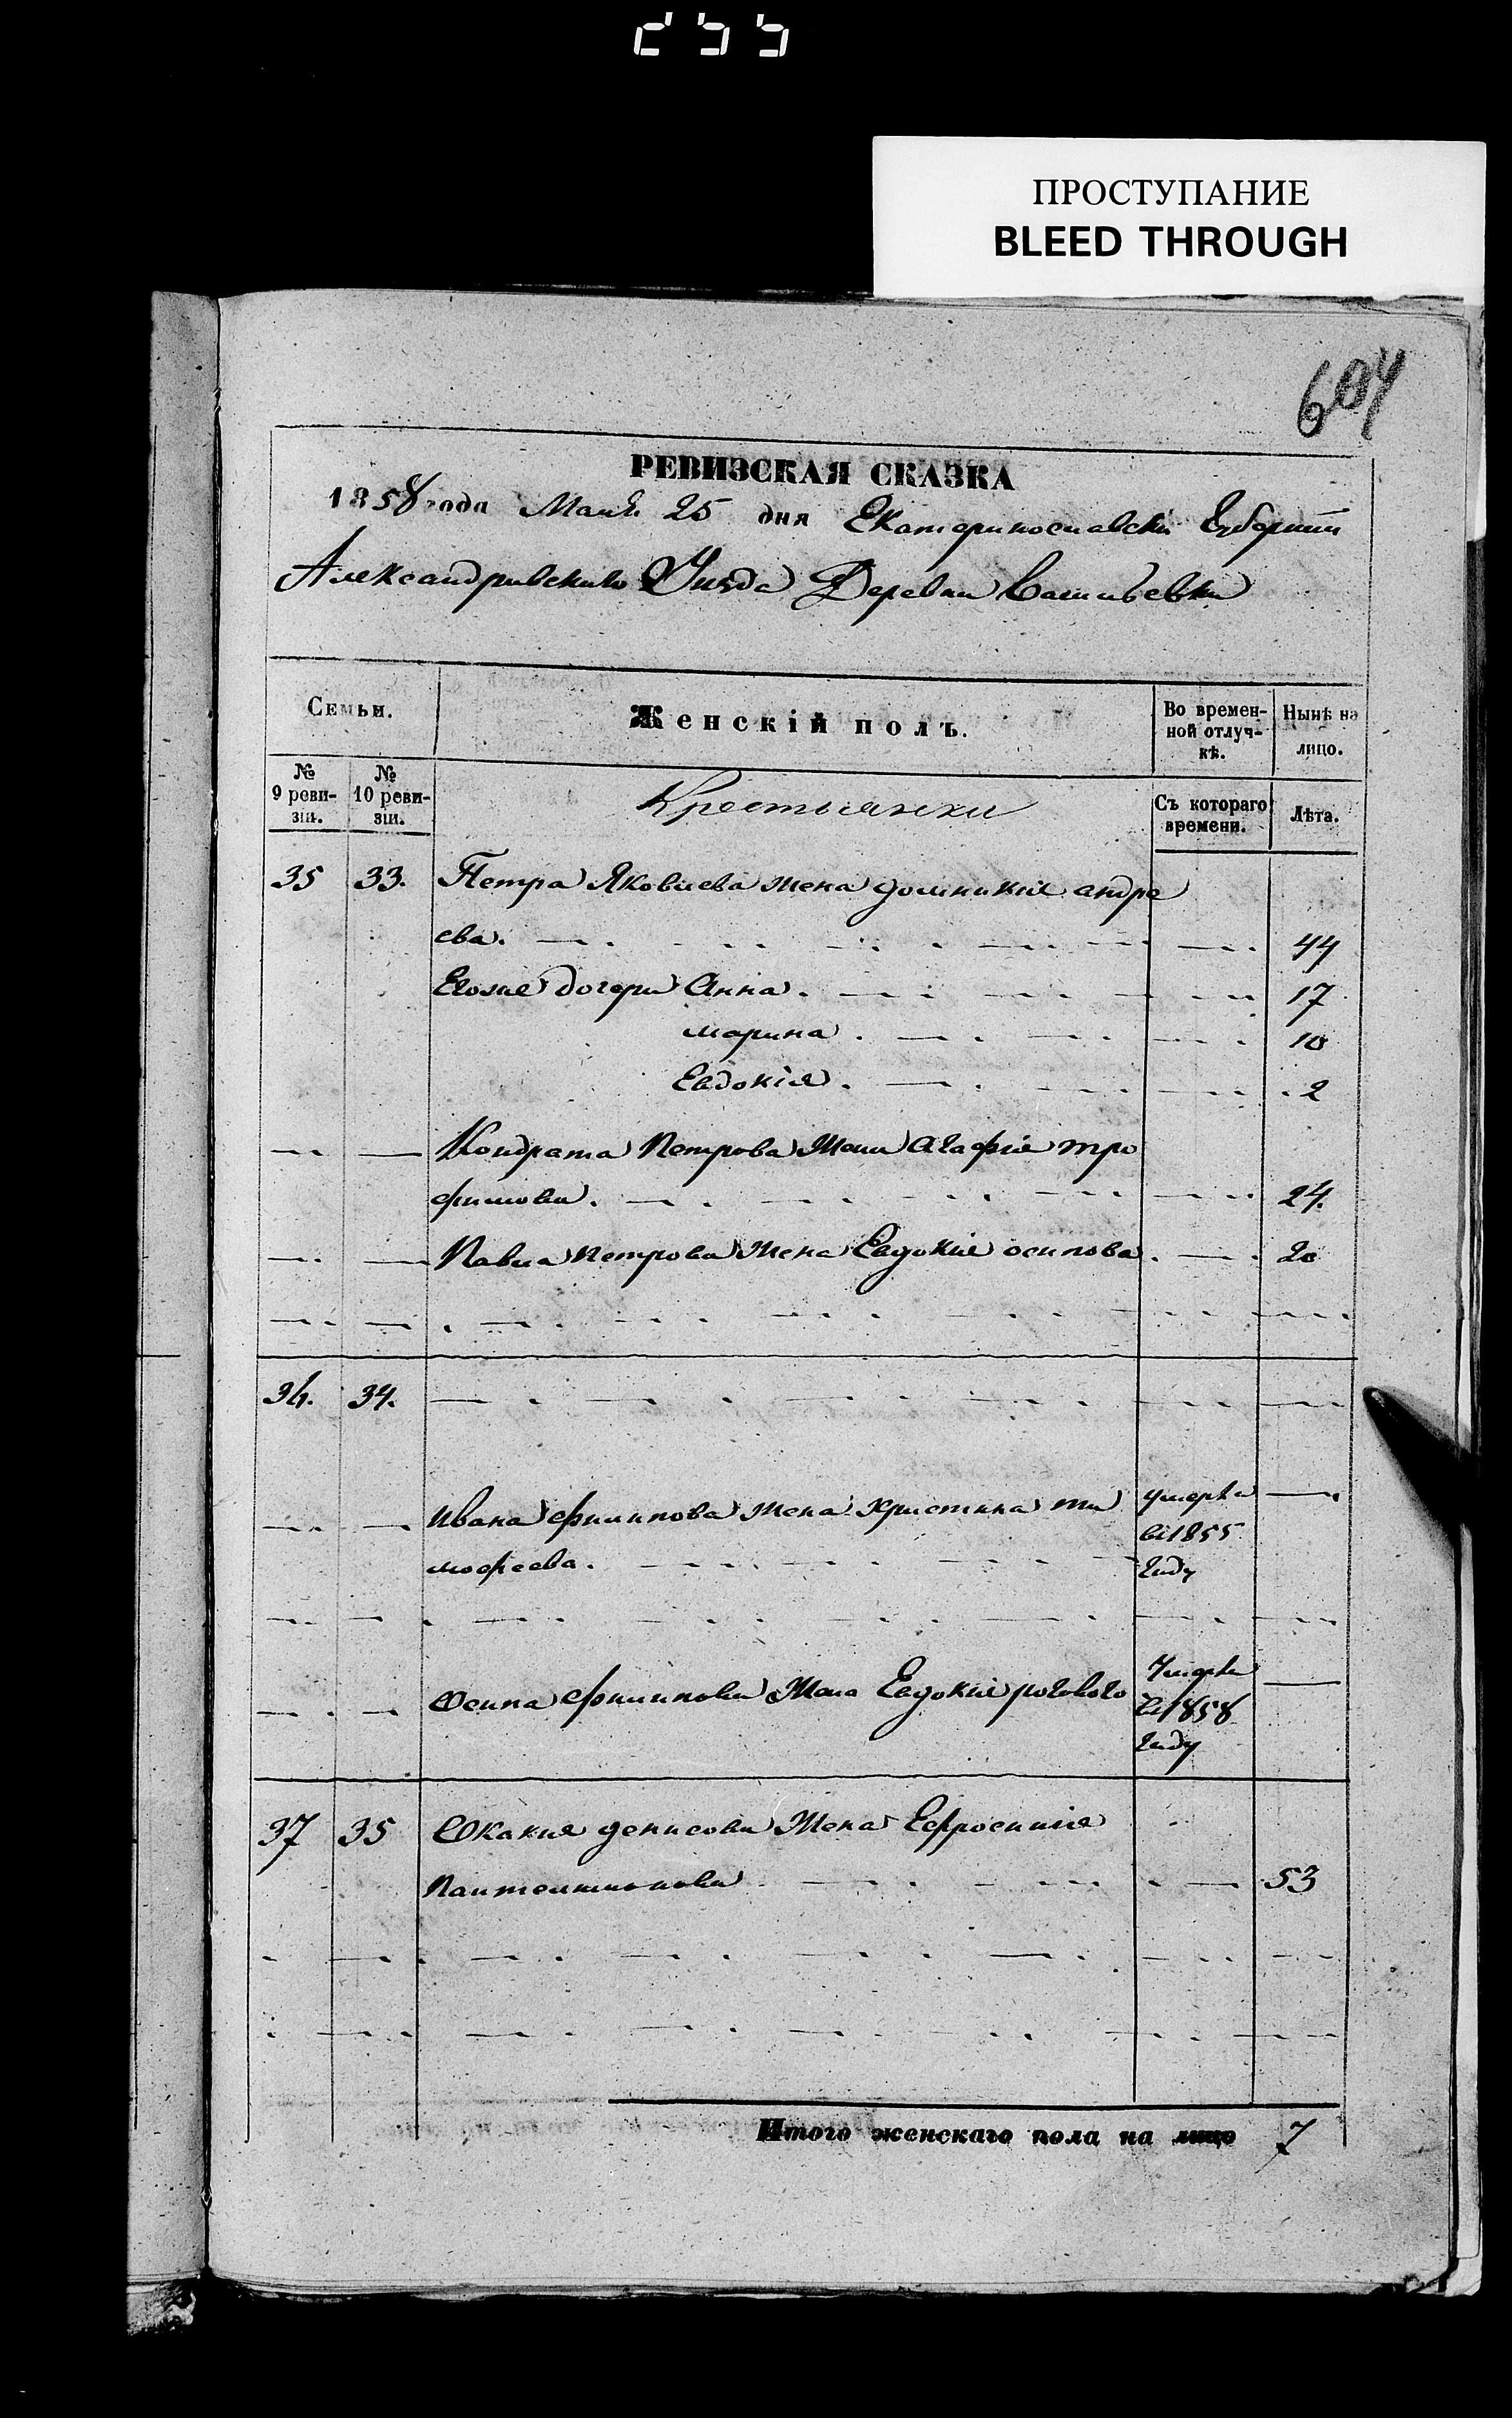 255
ПРОСТУПАНИЕ
BLEED THROUGH
604
РЕВИЗСКАЯ СКАЗКА
1858 года Маия 25 дня Екатеринославской Губернии
Александровскаго Уезда Деревни Васильевки
Семьи.
Женскій полъ.
Во времен-
ной отлуч-
кѣ.
Нынѣ на
лицо.
№
9 реви-
зіи.
№
10 реви-
зіи.
Крестьянки
Съ котораго
времени.
Лѣта.
35 33. Петра Яковлева жена домникия андре
ева. 44
дочери Анна. 17
марина. 10
Евдокія. 2
Кондрата Петрова Жена Агафия тро
фимова. 24.
Павла петрова Жена Евдокия осипова. 20
36. 34.
Ивана филипова Жена Христина ти
мофеева.
умерла
в 1855
году
Осипа филипова Жена Евдокия
Умерла
в 1858
году
37 35 денисова Жена Ефросиния
Пантелимонова 53
Итого женскаго пола на лицо 7